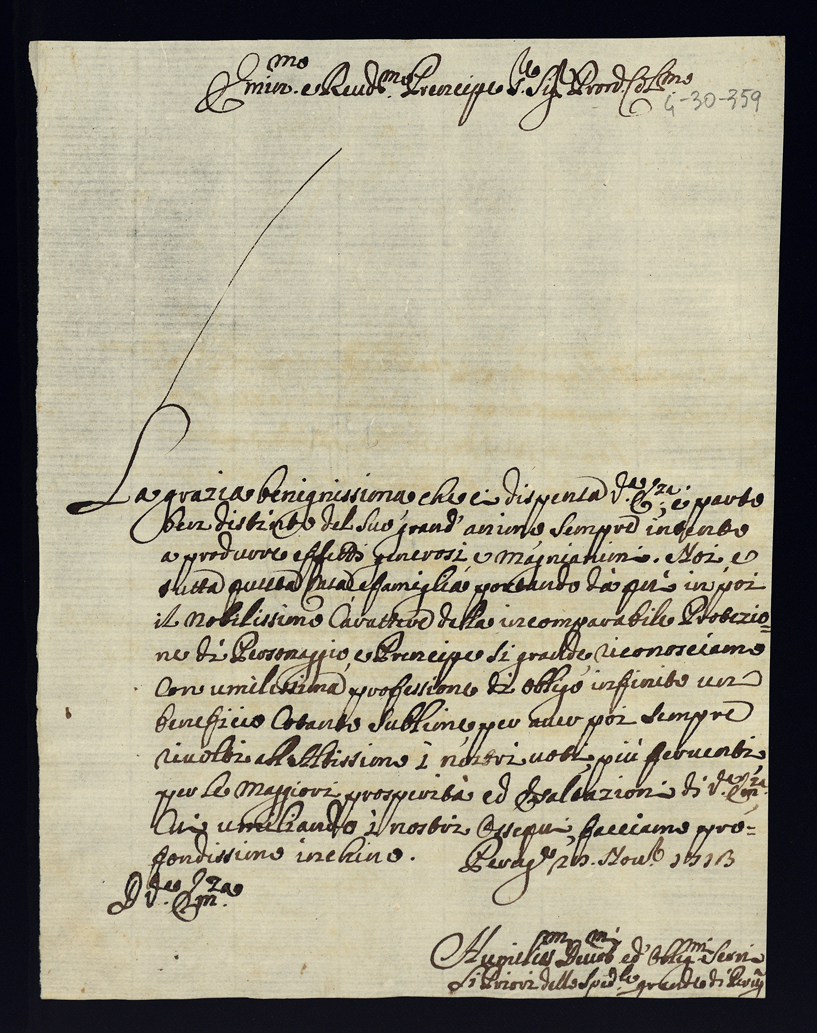 Emin.mo e Reud.mo Prencipe S.re Sig.re Pron Col.mo
G-30-359
La grazia benignissima che ci dispensa V.ra Em.za, è parto
ben distinto del Suo grand' animo sempre intento
a produrre effetti generosi e magnianimi. Noi e
tutta questa famiglia portando da qui in poi
il nobilissimo Carattere della incomparabile Protezio=
ne di Personaggio e Prencipe si grande, riconosciamo
Con umilissima professione di obligo infinito un
beneficio Cotanto Sublime per auer poi sempre
riuolti all Altissimo i nostri uoti più feruenti
per le Maggiori prosperità ed Esaltazioni di V.ra Em.za
Cui umiliando i nostri Ossequi, facciamo pro=
fondissimo inchino. Perug.a Nou.b 1713
D V.ra Em.za
Humiliss.mi Deuot.mi ed Oblig.mi Seru.i
Li Priori dello Sped.le grande di Perug.a